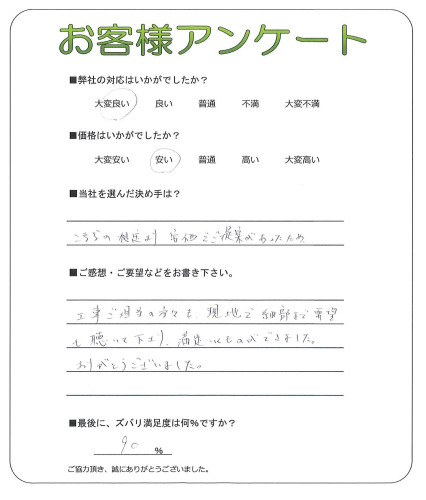 お客様アンケート
■弊社の対応はいかがでしたか？
大変良い 良い 普通 不満 大変不満
■価格はいかがでしたか？
大変安い 安い 普通 高い 大変高い
■当社を選んだ決め手は？
こちらの想定より安価でご提案があったため
■ご感想・ご要望などをお書き下さい。
工事ご担当の方々も、現地で細部まで要望
も聴いて下さり、満足いくものができました。
ありがとうございました。
■最後に、ズバリ満足度は何%ですか？
90 %
ご協力頂き、誠にありがとうございました。